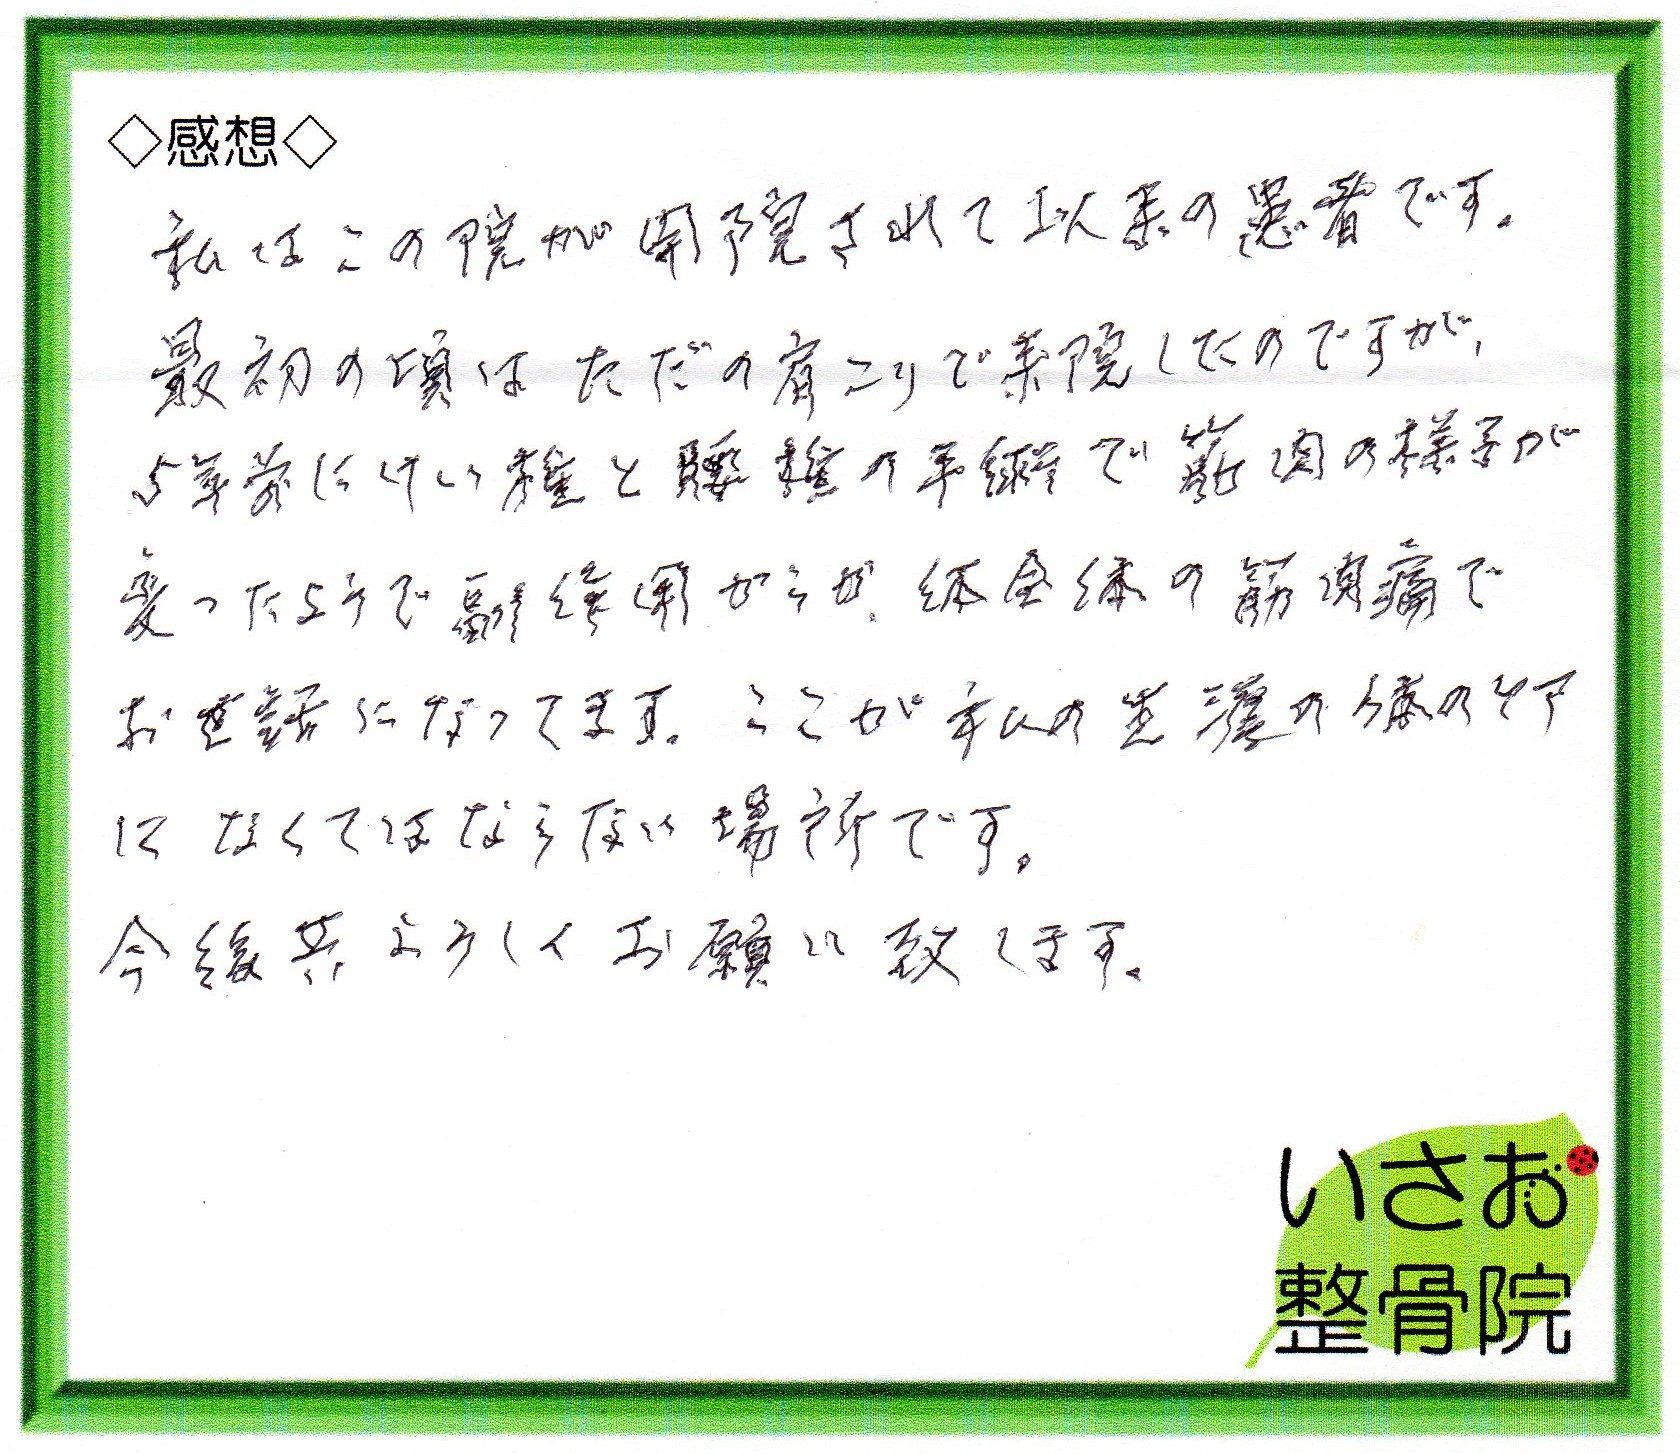 ◇感想◇
私はこの院が開院されて以来の患者です。
最初の頃はただの肩こりで来院したのですが、
5年前にけい椎と腰椎の手術で筋肉の様子が
変ったようで 体全体の筋肉痛で
お世話になってます。ここが私の生涯の体のケア
になくてはならない場所です。
今後共よろしくお願い致します。
いさお
整骨院